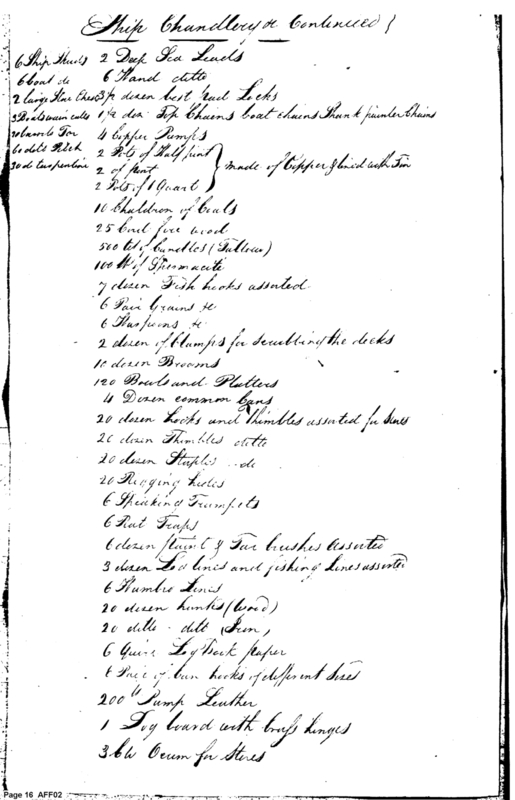 Ship Chandlery &c Continued
6 Ship Skuds 2 Deep Sea Leads
6 boat do 6 Hand ditto
2 large Stone Chest 3 1/2 dozen best pad Locks
3 Boatswain calls 1 1/2 doz. Top Chains boat chains Shank painter Chains
20 barrels Tar 4 Copper Pumps
10 do Pitch 2 Pots of Half pint
20 do Turpentine 2 of pint made of Copper & lined with Tin
2 Pots of 1 Quart
10 Chaldron of Coals
25 Cord fire wood
500 lbs of Candles (Tallow)
100 lb of Spermacite
7 dozen Fish hooks assorted
6 Pair Grains &c
6 Harpoons &c
2 dozen of Clamps for scrubbing the decks
10 dozen Brooms
120 Bowls and Platters
4 Dozen common Cans
20 dozen hooks and Thimbles assorted for Sizes
20 dozen Thimbles ditto
20 dozen Staples do
20 Rigging hides
6 Speaking Trumpets
6 Rat Traps
6 dozen paint & Tar brushes Assorted
3 dozen Cod lines and fishing lines assorted
6 Hambro Lines
20 dozen hanks (Wood)
20 ditto ditto (Iron)
6 Quire Log book paper
6 Pair of Can hooks of different Sizes
200 lb Pump Leather
1 Log board with brass hinges
3 Cw Ocum for Stores
Page 16 AFF02